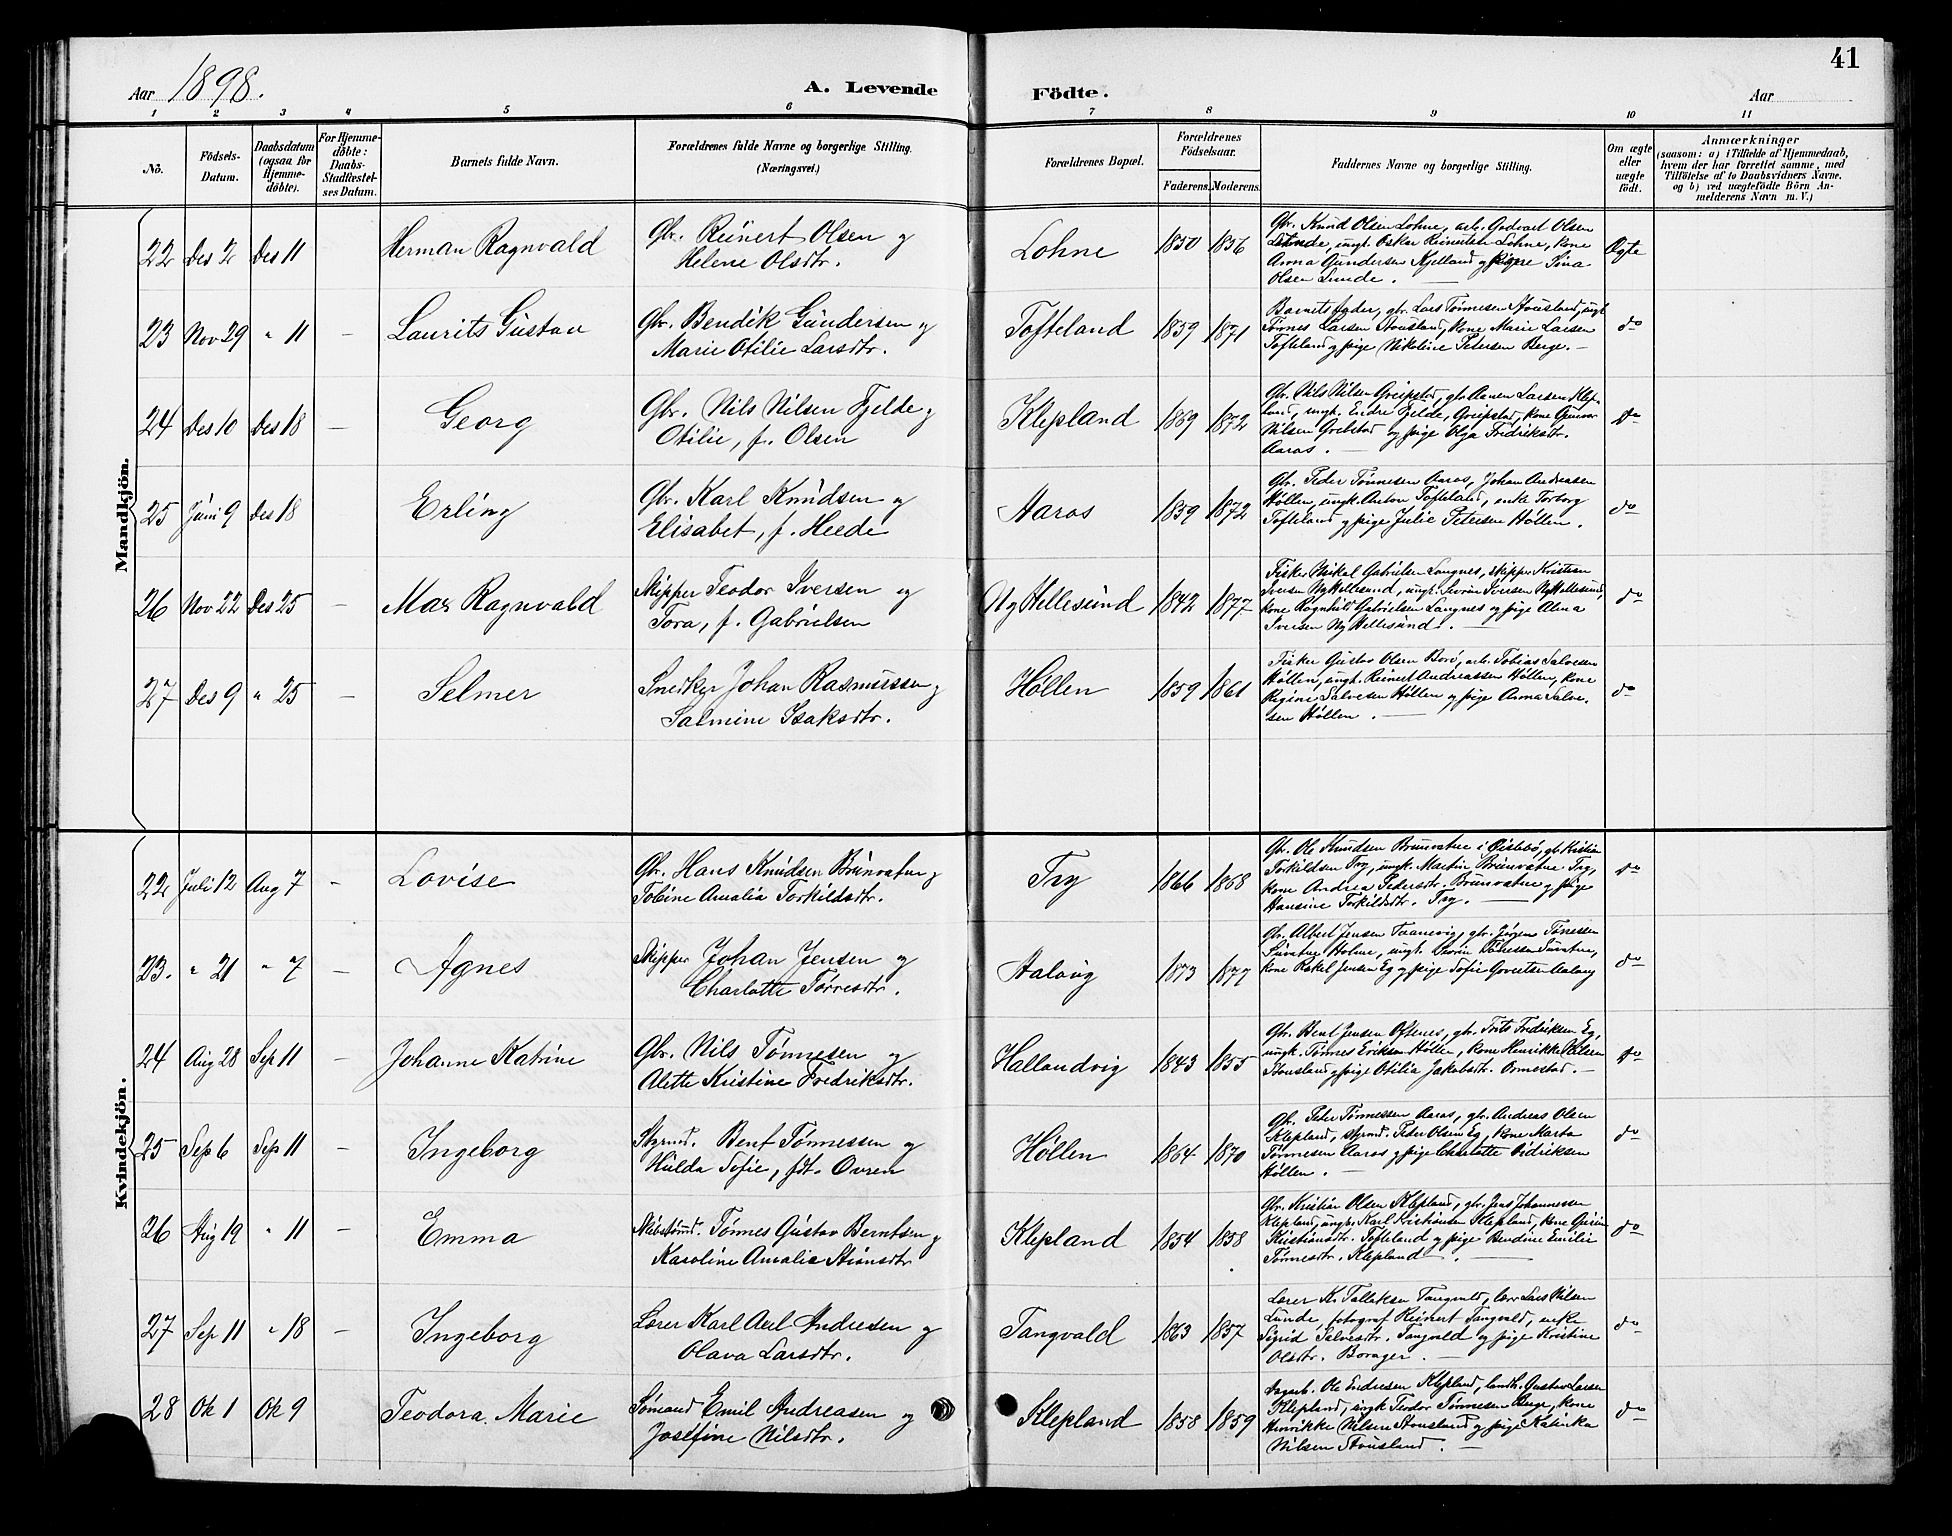 41
Aar 1898. A. Levende Födte. Aar
1 2 3 4 5 6 7 8 9 10 11
No. Födsels-Datum. Daabsdatum (ogsaa for Hjemmedöbte). For Hjemmedöbte: Daabs-Stadfæstelses Datum. Barnets fulde Navn. Forældrenes fulde Navne og borgerlige Stilling. (Næringsvei.) Forældrenes Bopæl. Forældrenes Födselsaar. Faderens. Moderens. Faddernes Navne og borgerlige Stilling. Om ægte eller uægte födt. Anmærkninger (saasom: a) i Tilfælde af Hjemmedaab, hvem der har forrettet samme, med Tilföielse af to Daabsvidners Navne, og b) ved uægtefödte Börn Anmelderens Navn m. V.)
Mandkjön.
22 Des 2 Des 11 Herman Ragnvald Gbr. Reinert Olsen og Helene Olsdtr. Lohne 1850 1856 Gbr. Knud Olsen Lohne, arb. Godvart Olsen Lunde, ungk. Oskar Reinertsen Lohne, kone Anna Gundersen Kjelland og pige Sina Olsen Lunde. Ægte
23 Nov 29 " 11 – Laurits Gustav Gbr. Bendik Gundersen og Marie Otilie Larsdtr. Tofteland 1859 1871 Barnets fader, gbr. Lars Tønnesen Stousland, ungk. Tønnes Larsen Stousland, kone Marie Larsen Tofteland og pige Nikoline Petersen Berge. – do
24 Des 10 Des 18 – Georg Gbr. Nils Nilsen Fjelde og Otilie, f. Olsen Klepland 1869 1872 Gbr. Nils Nilsen Greipstad, gbr. Aanen Larsen Klepland, ungk. Endre Fjelde, Greipstad, kone Gunvor Nilsen Grebstad og pige Olga Fredriksdtr. Aaros. – do
25 Juni 9 Des 18 Erling Gbr. Karl Knudsen og Elisabet, f. Heede Aaros 1859 1872 Gbr. Peder Tønnesen Aaros, Johan Andreassen Høllen, ungk. Anton Tofteland, enke Torborg Tofteland og pige Julie Petersen Høllen. do
26 Nov 22 Des 25 – Max Ragnvald Skipper Teodor Iversen og Tora, f. Gabrielsen Ny Hellesund 1842 1877 Fisker Mikal Gabrielsen Langnes, skipper Kristian Iversen Ny Hellesund, ungk. Iversen Ny Hellesund, kone Ragnhild Gabrielsen Langnes og pige Alma Iversen Ny Hellesund. – do
27 Des 9 " 25 – Selmer Snedker Johan Rasmussen og Salmine Isaksdtr. Høllen 1859 1861 Fisker Gustav Olsen Borø, arb. Tobias Salvesen Høllen, ungk. Reinert Andreassen Høllen, kone Regine Salvesen Høllen og pige Anna Salvesen Høllen. – do
Kvindekjön.
22 Juli 12 Aug 7 – Lovise Gbr. Hans Knudsen Brunvatne og Tobine Amalia Torkildsdtr. Try 1866 1868 Gbr. Ole Knudsen Brunvatne i Øislebø, gbr. Kristian Torkildsen Try, ungk. Martin Brunvatne Try, kone Andrea Pedersdtr. Brunvatne og pige Hansine Torkildsdtr. Try. – do
23. " 21 " 7 – Agnes Skipper Johan Jensen og Charlotte Tørresdtr. Aalovig 1873 1877 Gbr. Albert Jensen Taanevig, gbr. Jørgen Tønessen Holme, ungk. Tønessen kone Rakel Jensen Eg og pige Sofie do
24 Aug 28 Sep 11 – Johanne Katrine Gbr. Nils Tønnesen og Alette Kristine Fredriksdtr. Hallandvig 1843 1855 Gbr. Bent Jensen Oftenes, gbr. Frits Fredriksen Eg, ungk. Tønnes Eriksen Høllen, kone Henrikke Nilsen Stousland og pige Otilia Jakobsdtr. Ormestad. – do
25 Sep 6 Sep 11 – Ingeborg Styrmd. Bent Tønnessen og Hulda Sofie, fdt. Ouren Høllen 1864 1870 Gbr. Peter Tønnessen Aaros, gbr. Andreas Olsen Klepland, styrmd. Peder Olsen Eg, kone Marta Tønnesen Aaros og pige Charlotte Didriksen Høllen. – do
26 Aug 19 " 11 – Emma Skibstømmd. Tønnes Gustav Berntsen og Karoline Amalie Stiansdtr Klepland 1854 1858 Gbr. Kristian Olsen Klepland, gbr. Jens Johannessen Klepland, ungk. Karl Kristiansen Klepland, kone Kristiansdtr. Tofteland og pige Bendine Emilie Tønnesdtr. Klepland. – do
27 Sep 11 " 18 – Ingeborg Lærer Karl Axel Andresen og Olava Larsdtr. Tangvald 1863 1857 Lærer K. Tallaksen Tangvald, lærer Lars Nilsen Lunde, fotograf Reinert Tangvald, enke Sigrid Salvesdtr. Tangvald og pige Kristine Olsdtr. Borager. – do
28 Ok 1 Ok 9 Teodora Marie Sømand Emil Andreasen og Josefine Nilsdtr. Klepland 1858 1859 Dagarb. Ole Endresen Klepland, landh. Gustav Larsen Klepland, ungk. Teodor Tønnesen Berge, kone Henrikke Nilsen Stousland og pige Katinka Nilsen Stousland. – do